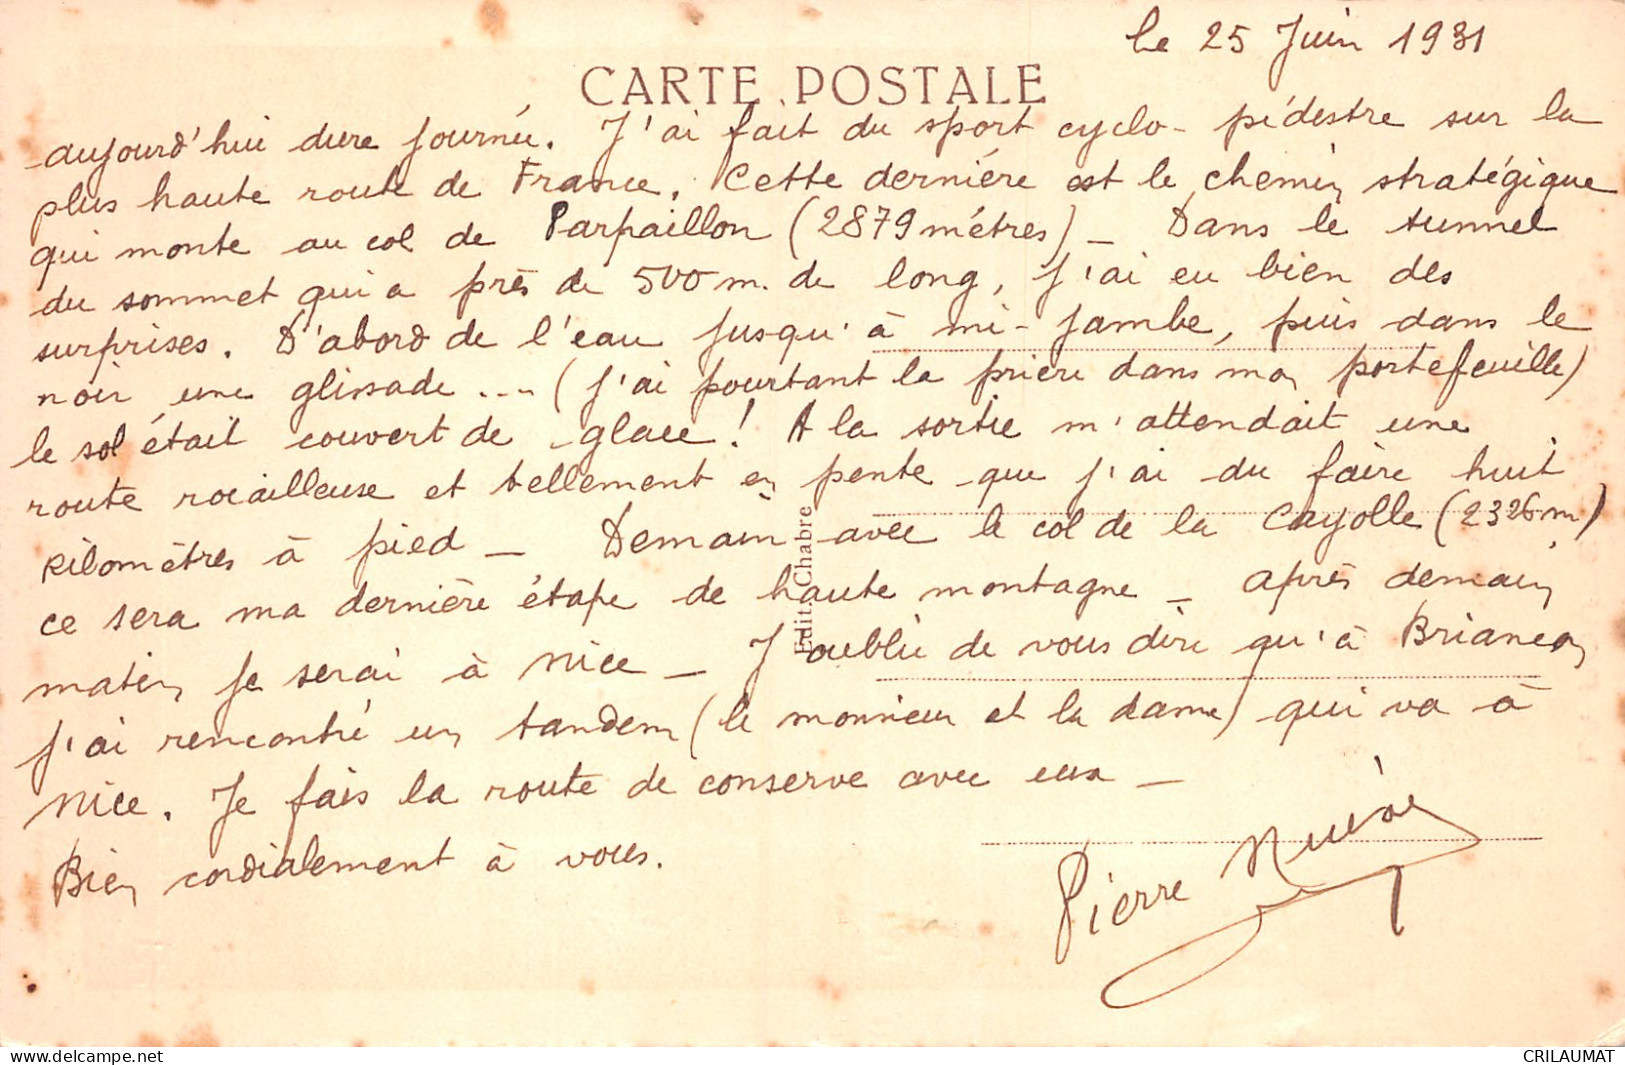 le 25 Juin 1931
CARTE POSTALE
aujourd'hui dure journée. J'ai fait du sport cyclo-pédestre sur la
plus haute route de France. Cette dernière est le chemin stratégique
qui monte au col de Parpaillon (2879 mètres) - Dans le tunnel
du sommet qui a près de 500 m. de long, j'ai eu bien des
surprises. D'abord de l'eau jusqu'à mi-jambe, puis dans le
noir une glissade ... (j'ai pourtant la prière dans mon portefeuille)
le sol était couvert de glace! A la sortie m'attendait une
route rocailleuse et tellement en pente que j'ai du faire huit
kilomètres à pied - Demain avec le col de la Cayolle (2326 m)
ce sera ma dernière étape de haute montagne - après demain
matin je serai à Nice - J'oublie de vous dire qu'à Briançon
j'ai rencontré un tandem (le monsieur et la dame) qui va à
Nice. Je fais la route de conserve avec eux -
Bien cordialement à vous.
Pierre
Edit. Chabre
delcampe.net
CRILAUMAT